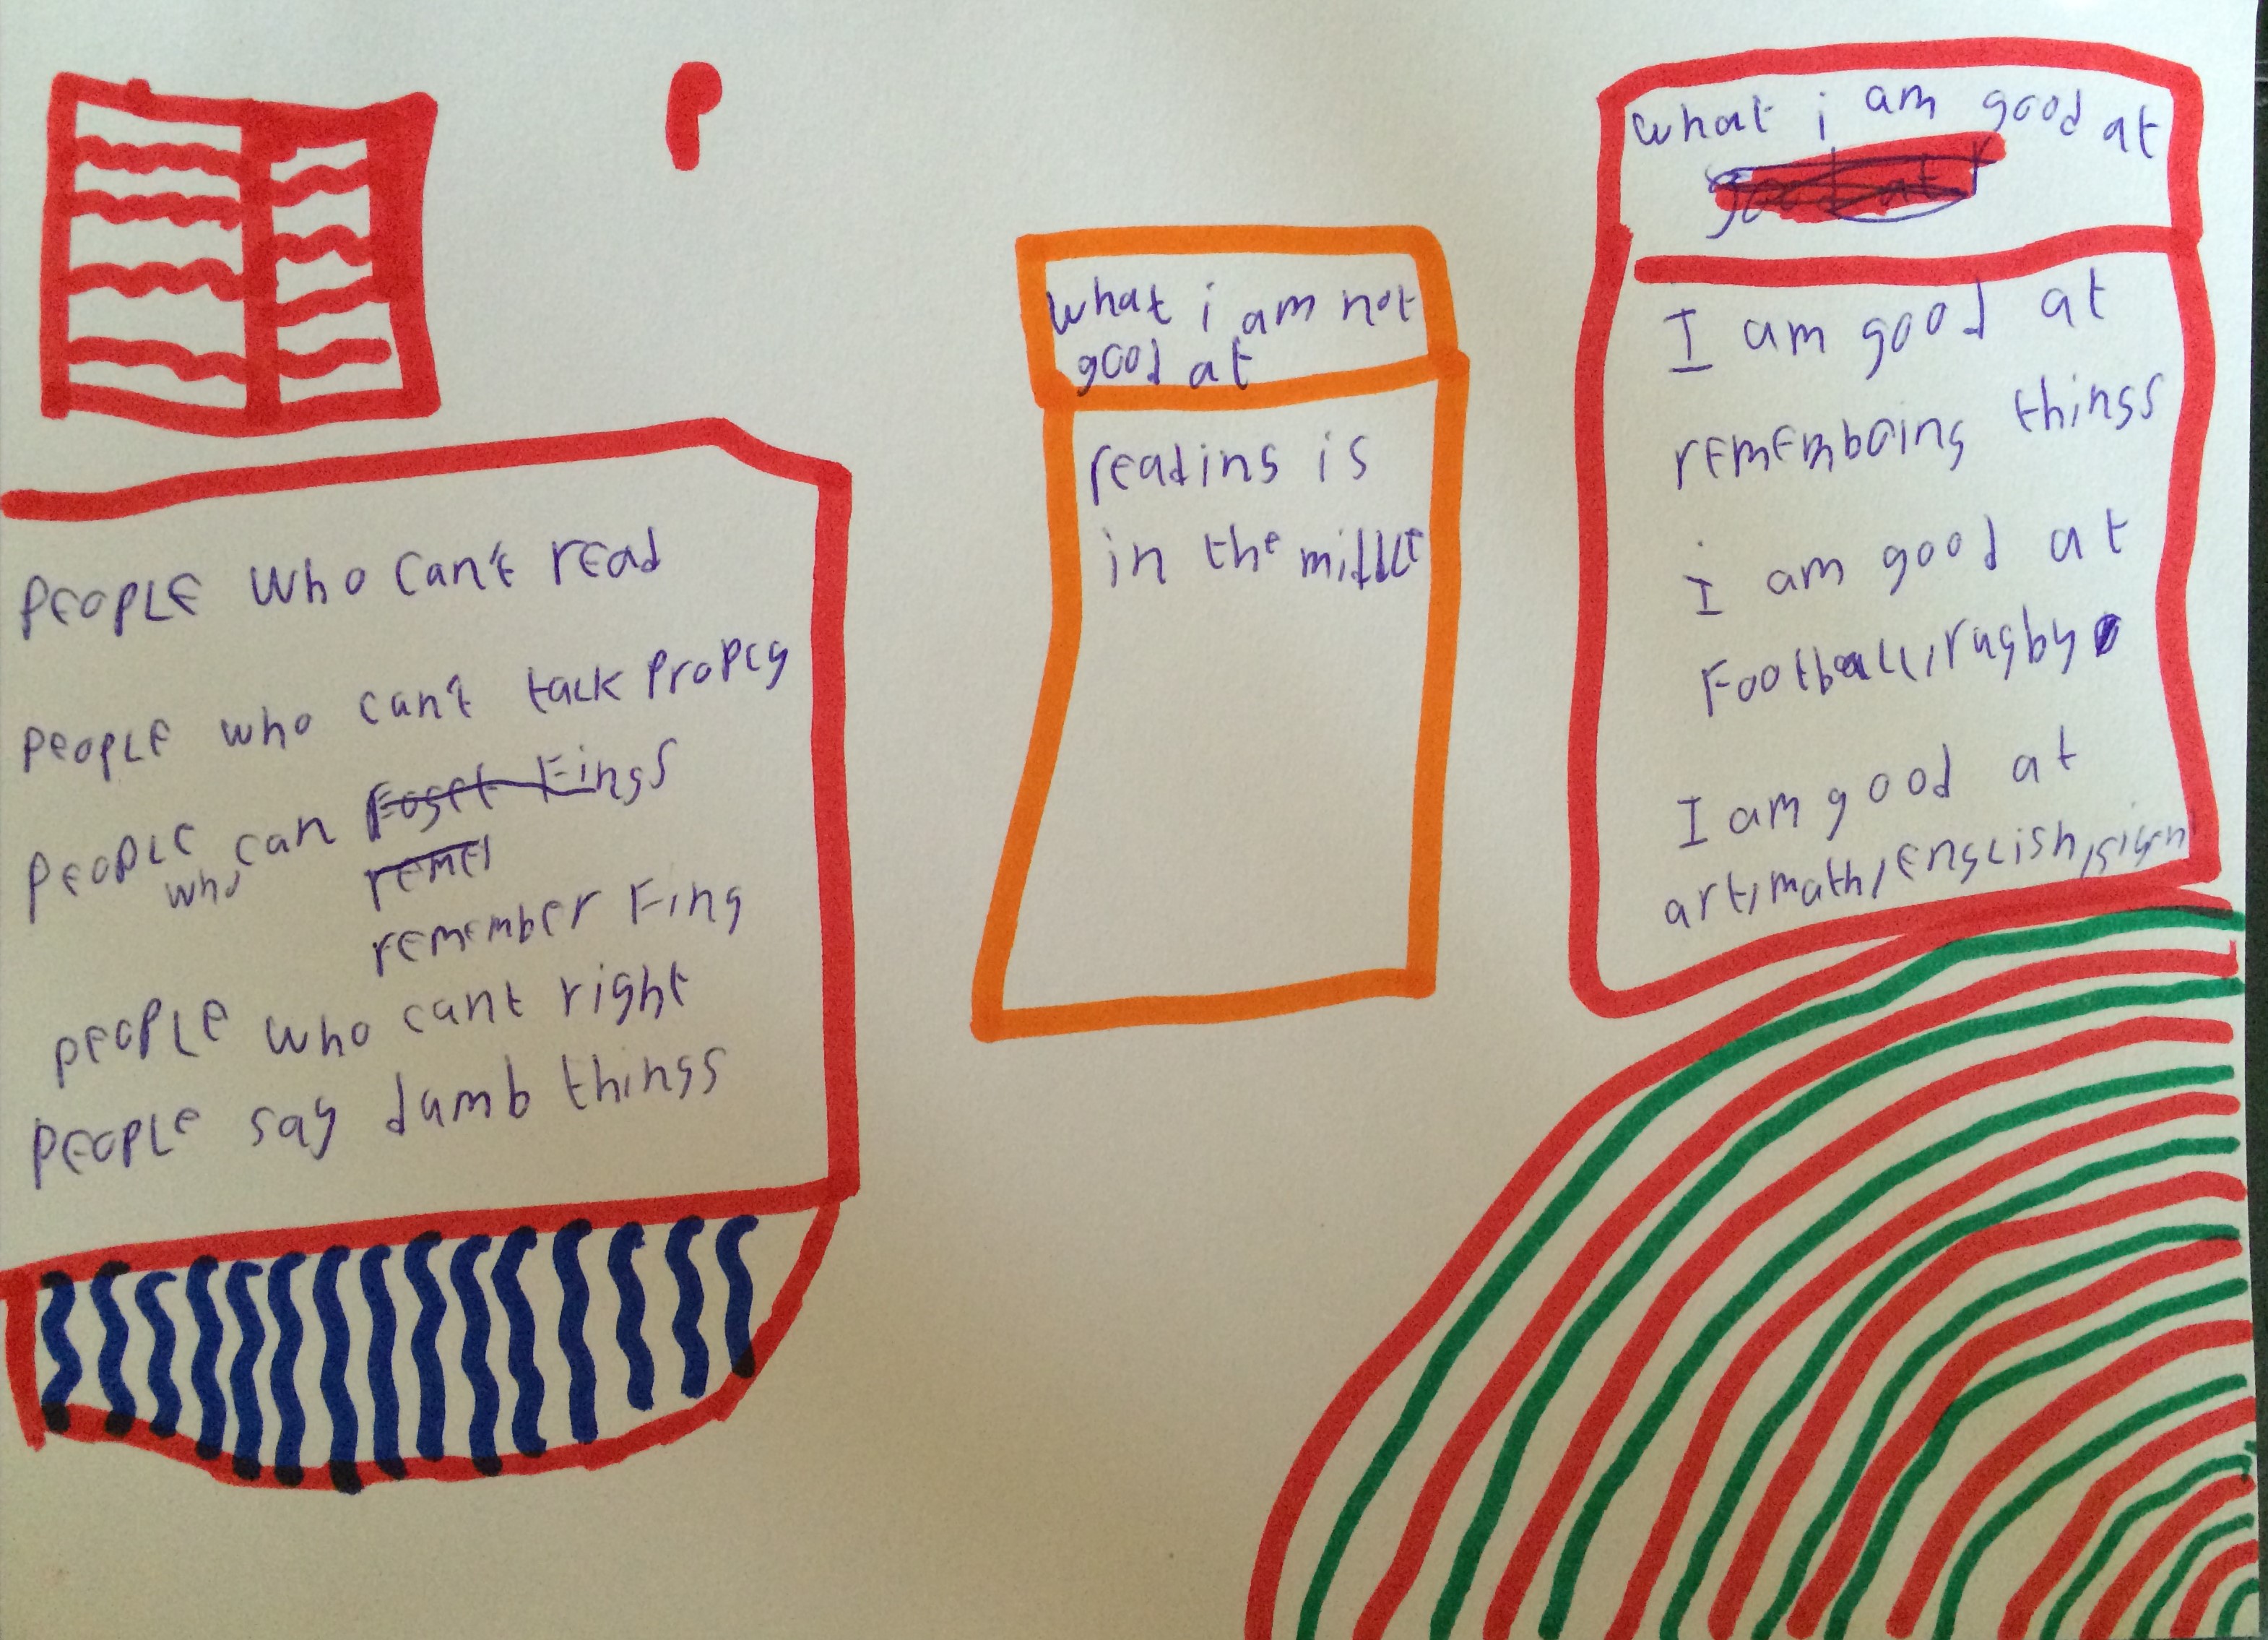 PEOPLE who can't read
PEOPLE who can't talk proply
PEOPLE who can Foget Fings
remei
remember Fing
PEOPLE who cant right
PEOPLE say dumb things
what i am not
good at
reading is
in the middle
what i am good at
good at
I am good at
rememboing things
i am good at
Football, rugby
I am good at
art, math, English, sign